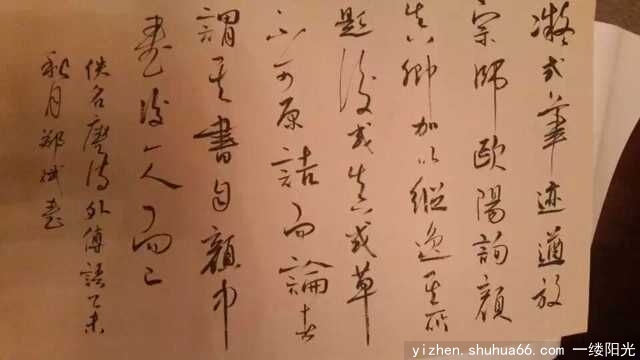 凝式筆迹遒放
宗師歐陽詢顏
真卿加以縱逸其所
題後或真或草
不可原詰而論者
謂其書自顏中
書後一人而已
佚名廛清外傳語乙未
秋月鄭斌書
yizhen.shuhua66.com 一缕阳光